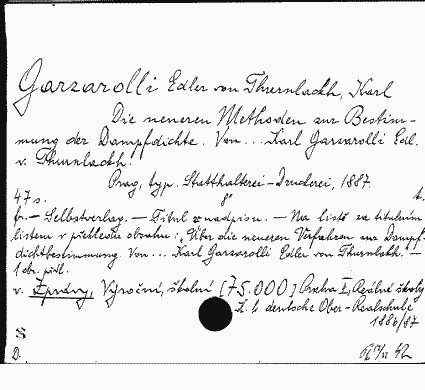 Garzarolli Edler von Thurnlackh, Karl
Die neueren Methoden zur Bestim-
mung der Dampfdichte. Von... Karl Garzarolli Edl.
v. Thurnlackh.
Prag, typ. Statthalterei-Druckerei, 1887.
47 s. 8°
fr. — Selbstverlag. — Titul z nadpisu. — Na listě za titulním
listem v přehledu obsahu: „Über die neueren Verfahren zur Dampf-
dichtbestimmung. Von... Karl Garzarolli Edler von Thurnlackh. —
1 dr. příl.
v. Zprávy, Výroční, školní [75.000] Praha I, Reálné školy
K. k. deutsche Ober-Realschule
1886/87
S
D.